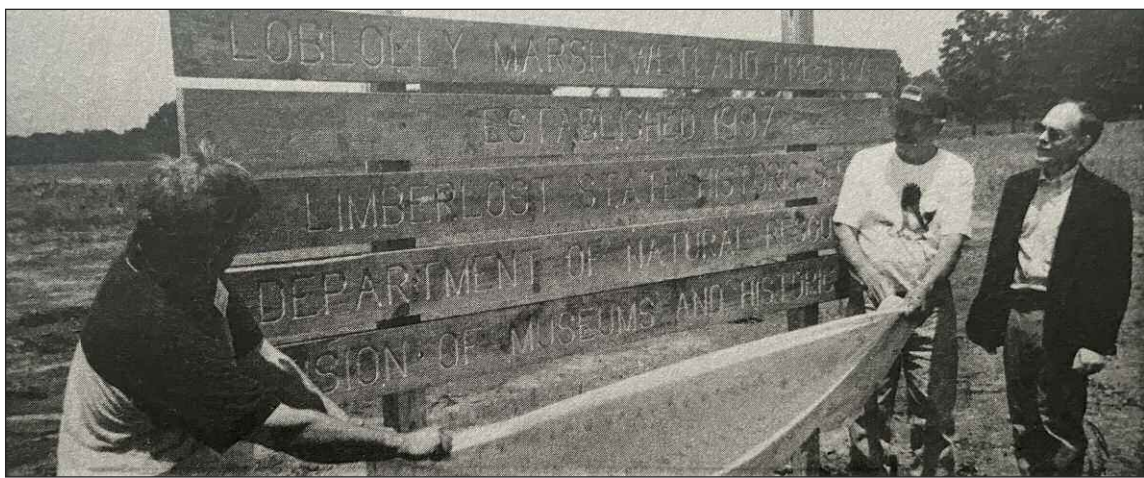 LOBLOLLY MARSH WETLAND PRESERVE
ESTABLISHED 1997
LIMBERLOST STATE HISTORIC
DEPARTMENT OF NATURAL RESOU
ISION OF MUSEUMS AND HISTORIC